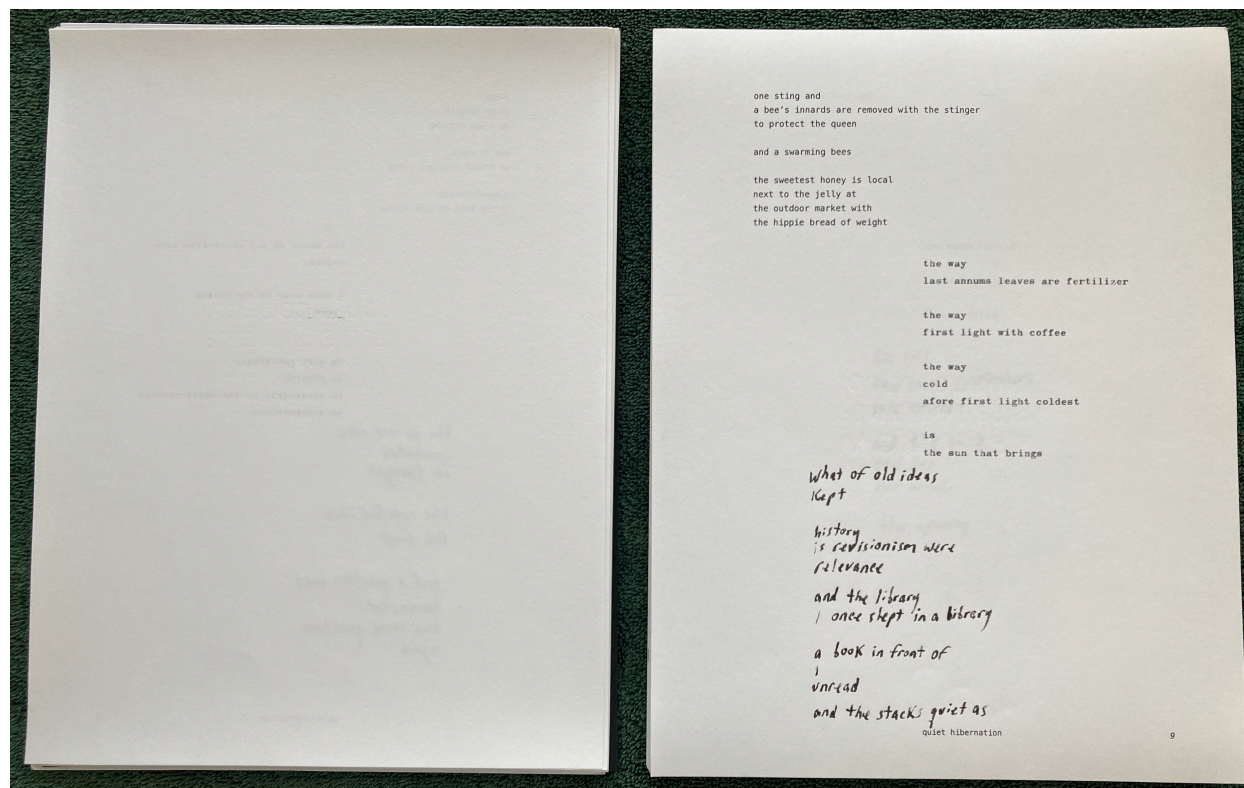 one sting and
a bee's innards are removed with the stinger
to protect the queen
and a swarming bees
the sweetest honey is local
next to the jelly at
the outdoor market with
the hippie bread of weight
the way
last annums leaves are fertilizer
the way
first light with coffee
the way
cold
afore first light coldest
is
the sun that brings
What of old ideas
Kept
history
is revisionism were
relevance
and the library
I once slept in a library
a book in front of
I
unread
and the stacks quiet as
quiet hibernation
9